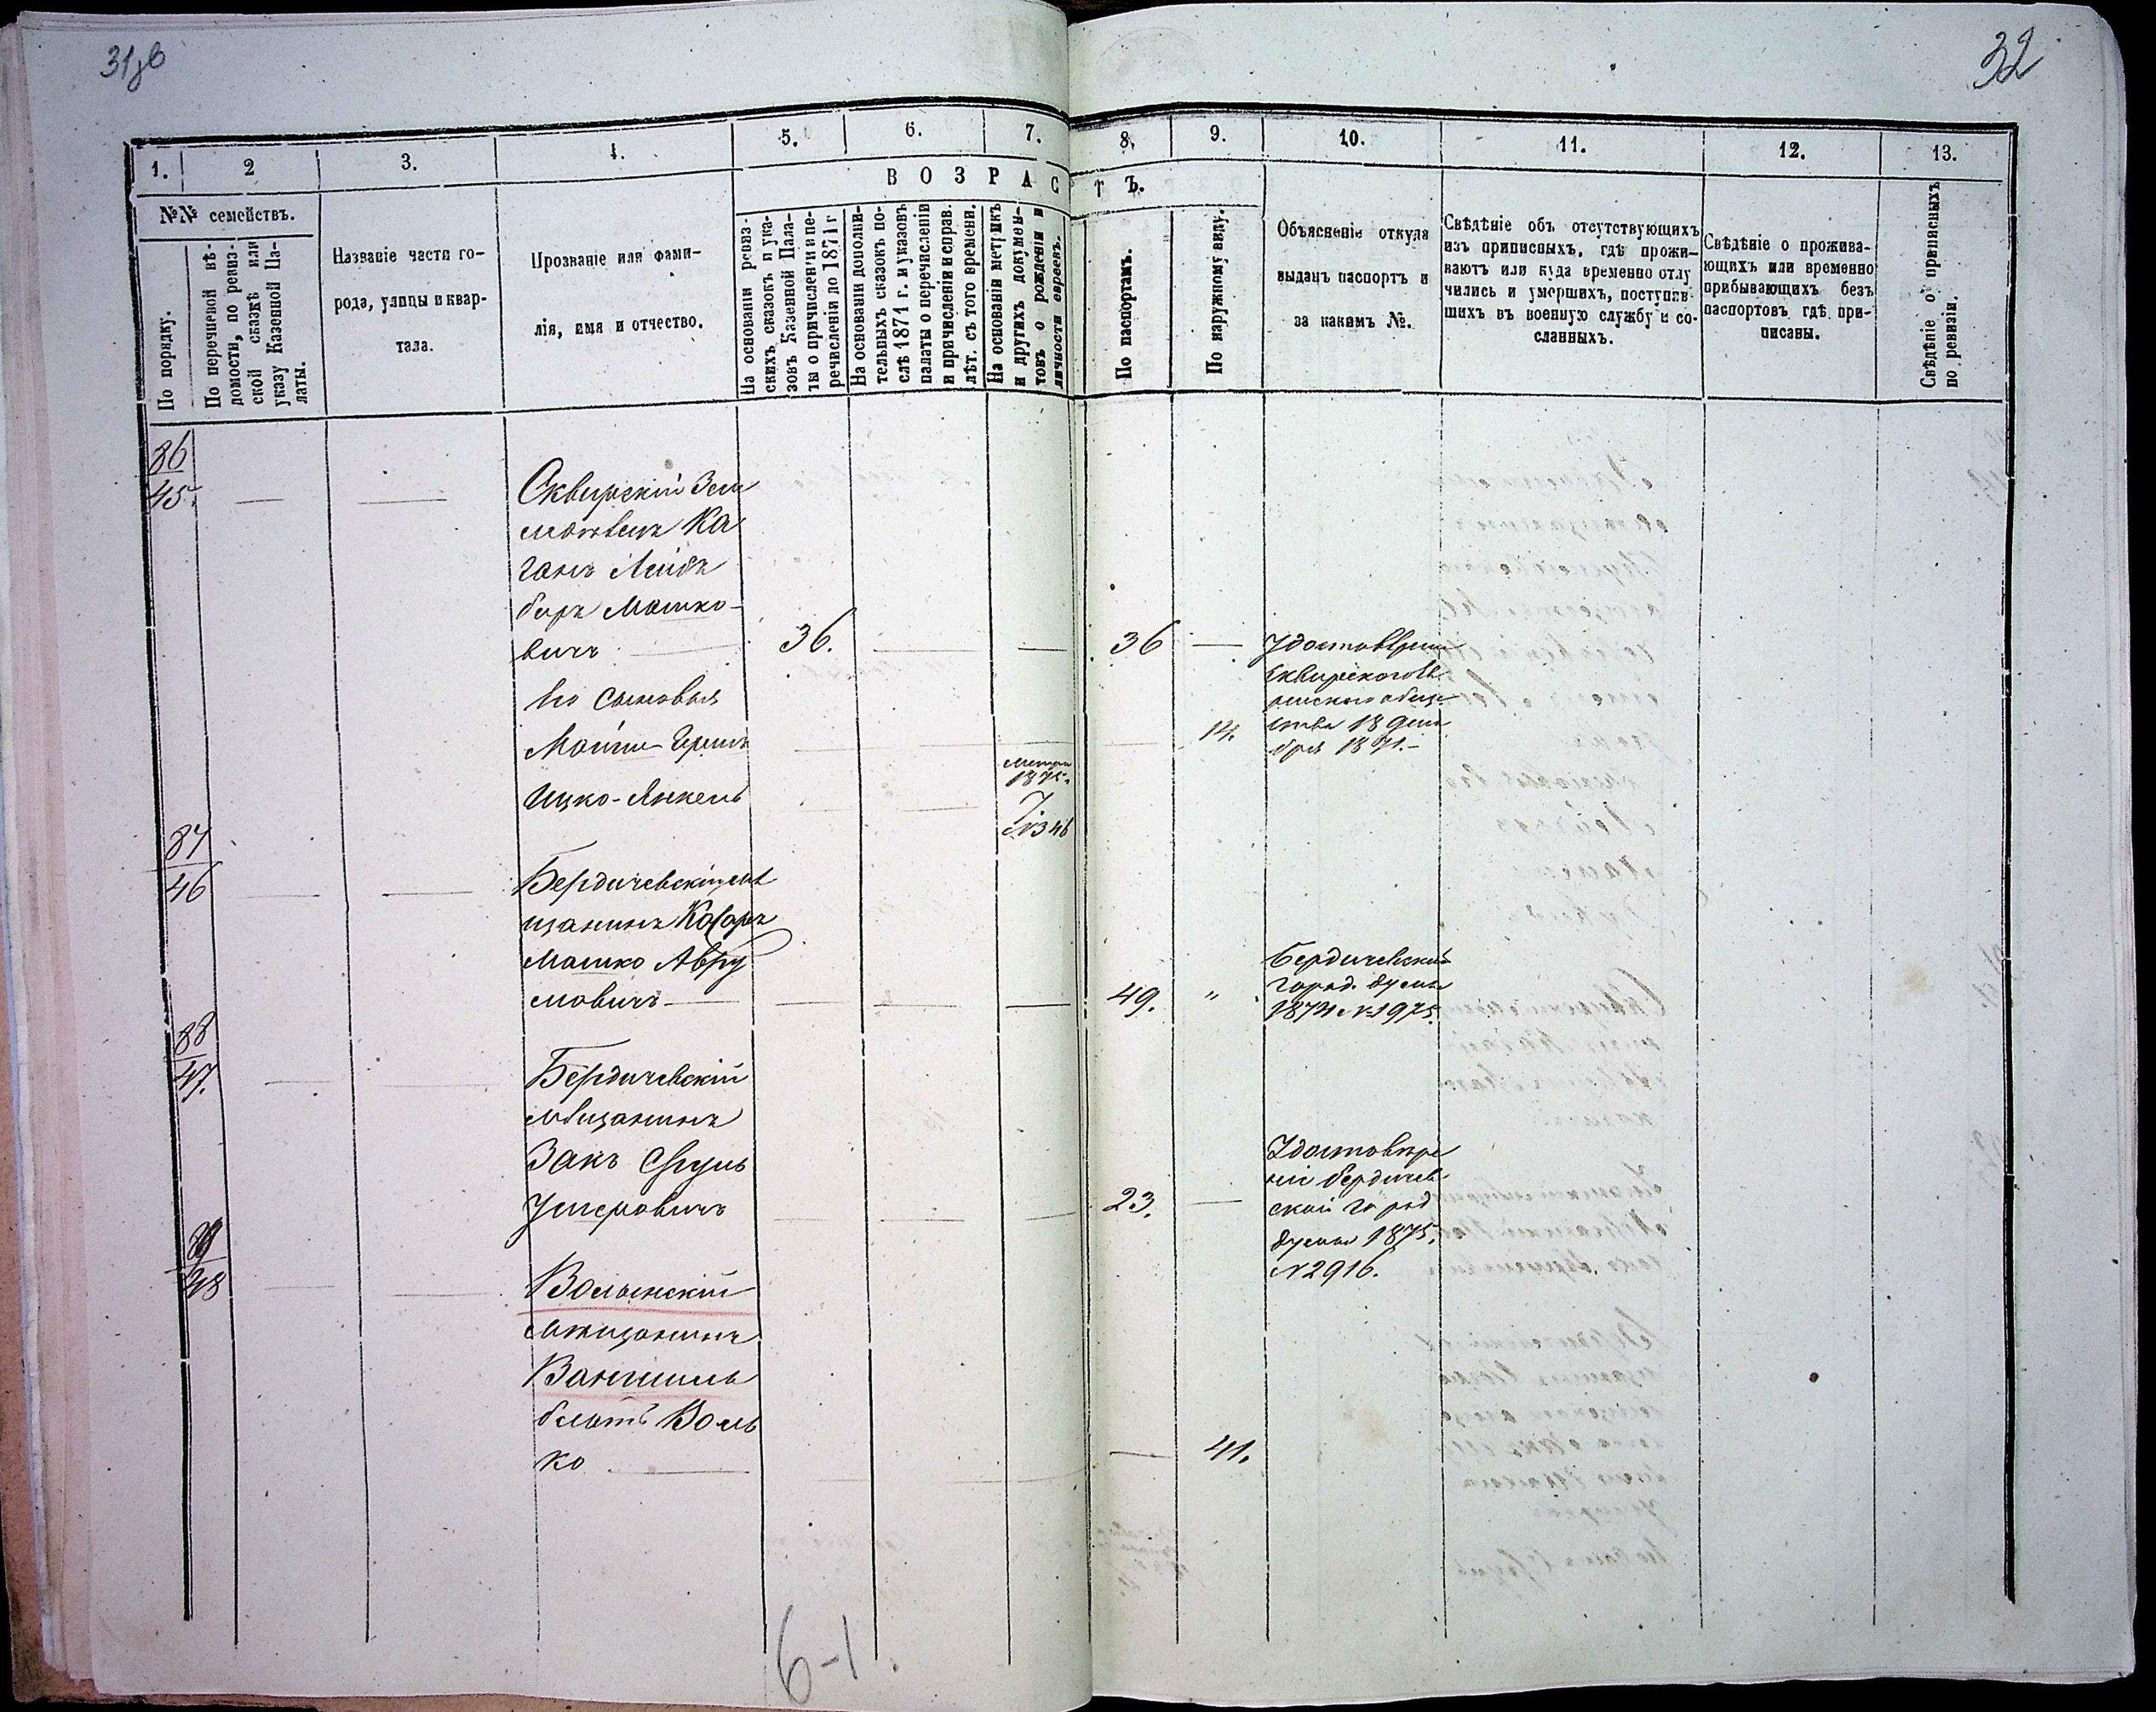 31об
32
1. 2 3. 4. 5. 6. 7. 8. 9. 10. 11. 12. 13.
ВОЗРАСТЪ.
№№ семействъ.
По порядку.
По перечневой вѣ-
домости, по ревиз-
ской сказкѣ или
указу Казенной Па-
латы.
Названіе части го-
рода, улицы и квар-
тала.
Прозваніе или фами-
лія, имя и отчество.
На основаніи ревиз-
скихъ сказокъ и ука-
зовъ Казенной Пала-
ты о причисленіи и пе-
речисленіи до 1871 г
На основаніи дополни-
тельныхъ сказокъ по-
слѣ 1871 г. и указовъ
палаты о перечисленіи
и причисленіи и справ.
лѣт. съ того времени.
На основаніи метрикъ
и другихъ докумен-
товъ о рожденіи и
личности евреевъ.
По паспортамъ.
По наружному виду.
Объясненіе откуда
выданъ паспортъ и
за какимъ №.
Свѣдѣніе объ отсутствующихъ
изъ приписныхъ, гдѣ прожи-
ваютъ или куда временно отлу
чились и умершихъ, поступив-
шихъ въ военную службу и со-
сланныхъ.
Свѣдѣніе о прожива-
ющихъ или временно
прибывающихъ безъ
паспортовъ гдѣ при-
писаны.
Свѣдѣніе о приписныхъ
по ревизіи.
86
45.
Сквирскій Зем
Ка
ганъ Лейб
беръ Мошко-
вичъ 36. — — 36 —
Его сыновья
Мойше-Гершъ 14.
Ицко-Янкель
1875
7.
№346
Удостовѣрен
Сквирского
общe
ства 18
бря 1871.-
87
46
Бердичевскій мѣ
щанинъ
Мошко Авру
мовичъ — — — — 49. "
Бердичевской
город. думы
1874 №1975.
88
47.
Бердичевскій
мѣщанинъ
Закъ Сруль
Ушеровичъ — — — 23. —
Удостовѣре
ніе бердичев
ской город
думы 1875.
№2916.
89
48
Волынскій
мѣщанинъ
блатъ Воль
ко — — 41.
6-1